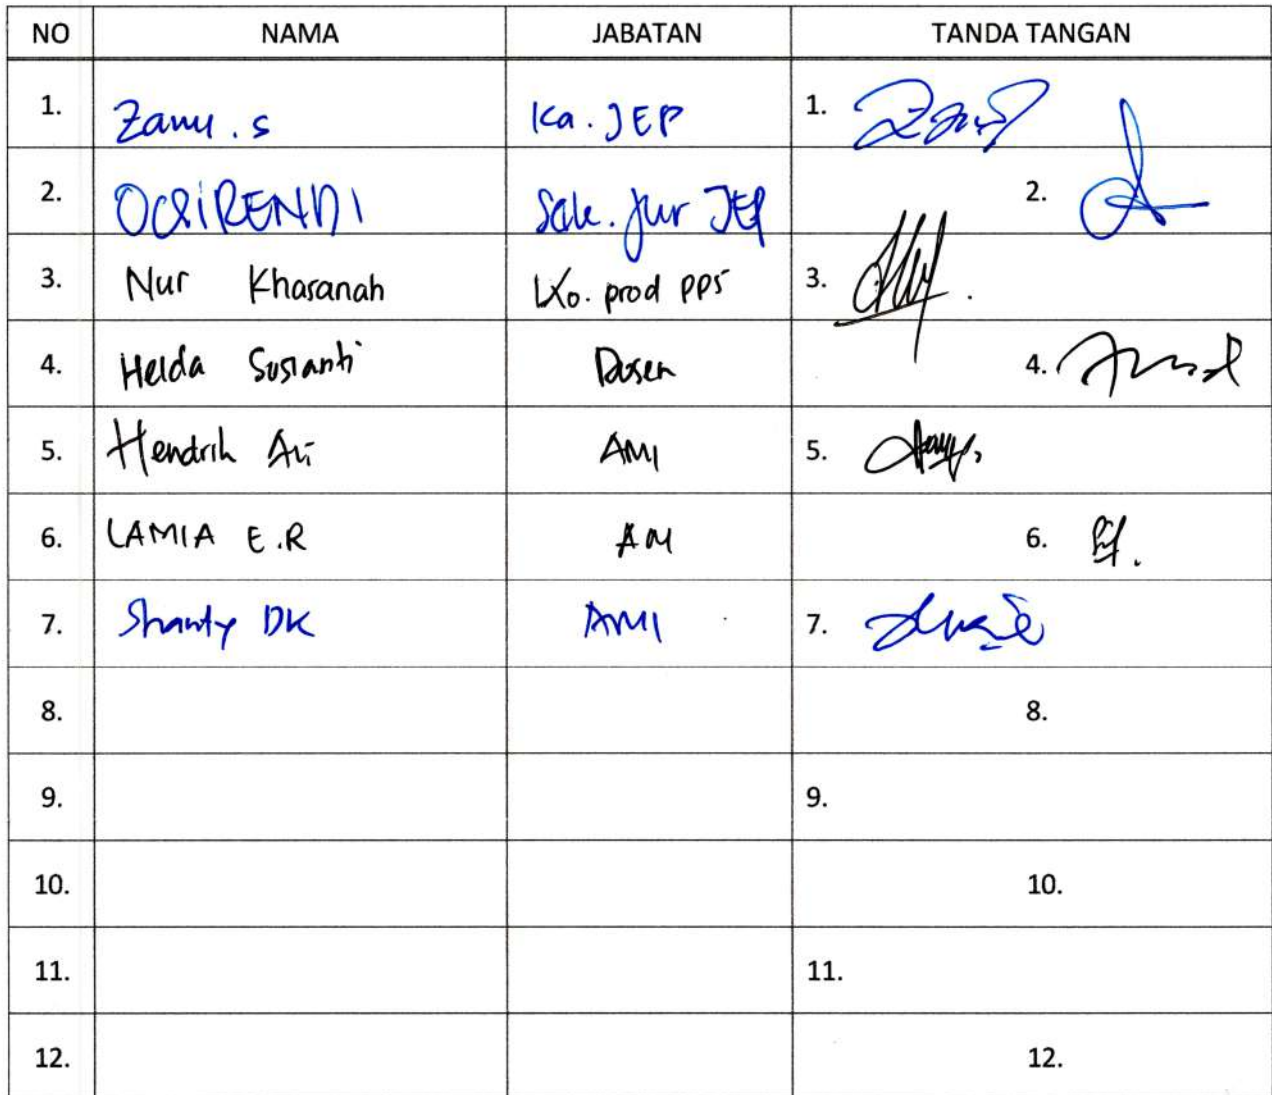 NO NAMA JABATAN TANDA TANGAN
1. Zamy. s Ka. JEP 1.
2. OCSIRENDI Sek. Jur JEP 2.
3. Nur Khasanah Ko. prod PPS 3.
4. Helda Susianti Dosen 4.
5. Hendrik Ari AMI 5.
6. LAMIA E.R AMI 6.
7. Shanty DK AMI 7.
8. 8.
9. 9.
10. 10.
11. 11.
12. 12.